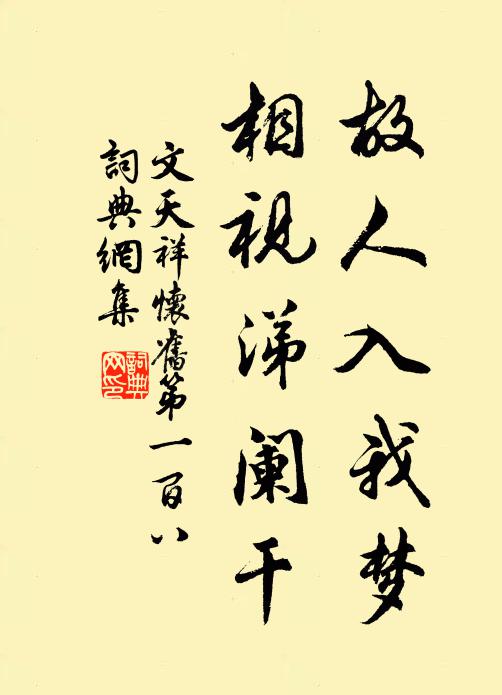 故人入我梦
相视涕阑干
文天祥懷舊第一百八
詞典網集
詞典网印